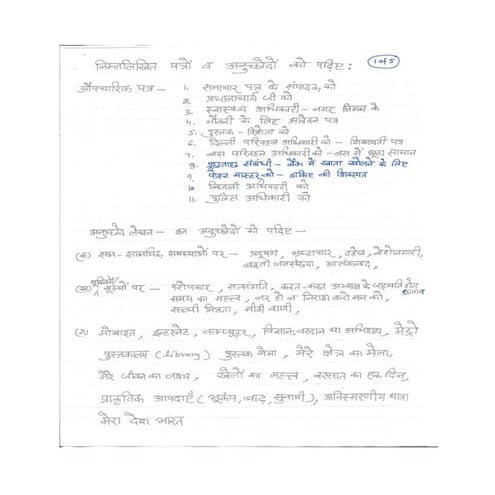 निम्नलिखित पत्रों व अनुच्छेदों को पढ़िए :
1 of 5
औपचारिक पत्र - 1. समाचार पत्र के संपादक को
2. प्रधानाचार्य जी को
3. स्वास्थ्य अधिकारी - नगर निगम के
4. नौकरी के लिए आवेदन पत्र
5. पुस्तक - विक्रेता को
6. दिल्ली परिवहन अधिकारी को - शिकायती पत्र
7. बस परिवहन अधिकारी को - बस में छूटा सामान
8. पूछताछ संबंधी - बैंक में खाता खोलने के लिए
9. पोस्ट मास्टर को - डाकिए की शिकायत
10 बिजली अधिकारी को
11. पुलिस अधिकारी को
अनुच्छेद लेखन - इन अनुच्छेदों को पढ़िए -
(क) सम-सामयिक समस्याओं पर - प्रदूषण, भ्रष्टाचार, दहेज, बेरोजगारी,
बढ़ती जनसंख्या, आतंकवाद,
(ख) मूल्यों पर - परोपकार, सत्संगति, करत-करत अभ्यास के जड़मति होत
समय का महत्त्व, नर हो न निराश करो मन को,
सच्ची मित्रता, मीठी वाणी,
(ग) मोबाइल, इन्टरनेट, कम्प्यूटर, विज्ञान: वरदान या अभिशाप, मेट्रो
पुस्तकालय (Library) पुस्तक मेला, मेरे क्षेत्र का मेला,
मेरे जीवन का लक्ष्य, खेलों का महत्त्व, बरसात का एक दिन,
प्राकृतिक आपदाएँ (भूकंप, बाढ़, सुनामी), अविस्मरणीय यात्रा
मेरा देश भारत